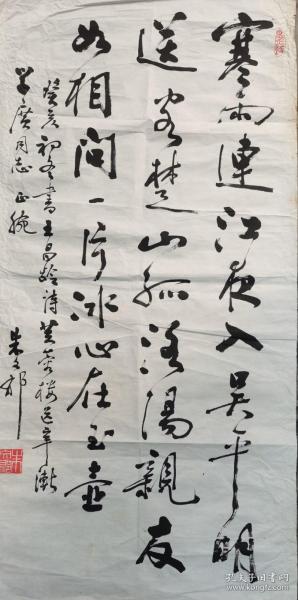 寒雨連江夜入吳平明
送客楚山孤洛陽親友
如相問一片冰心在玉壺
癸亥初冬書王昌齡詩芙蓉樓送辛漸
学廣同志正腕
孔夫子旧书网